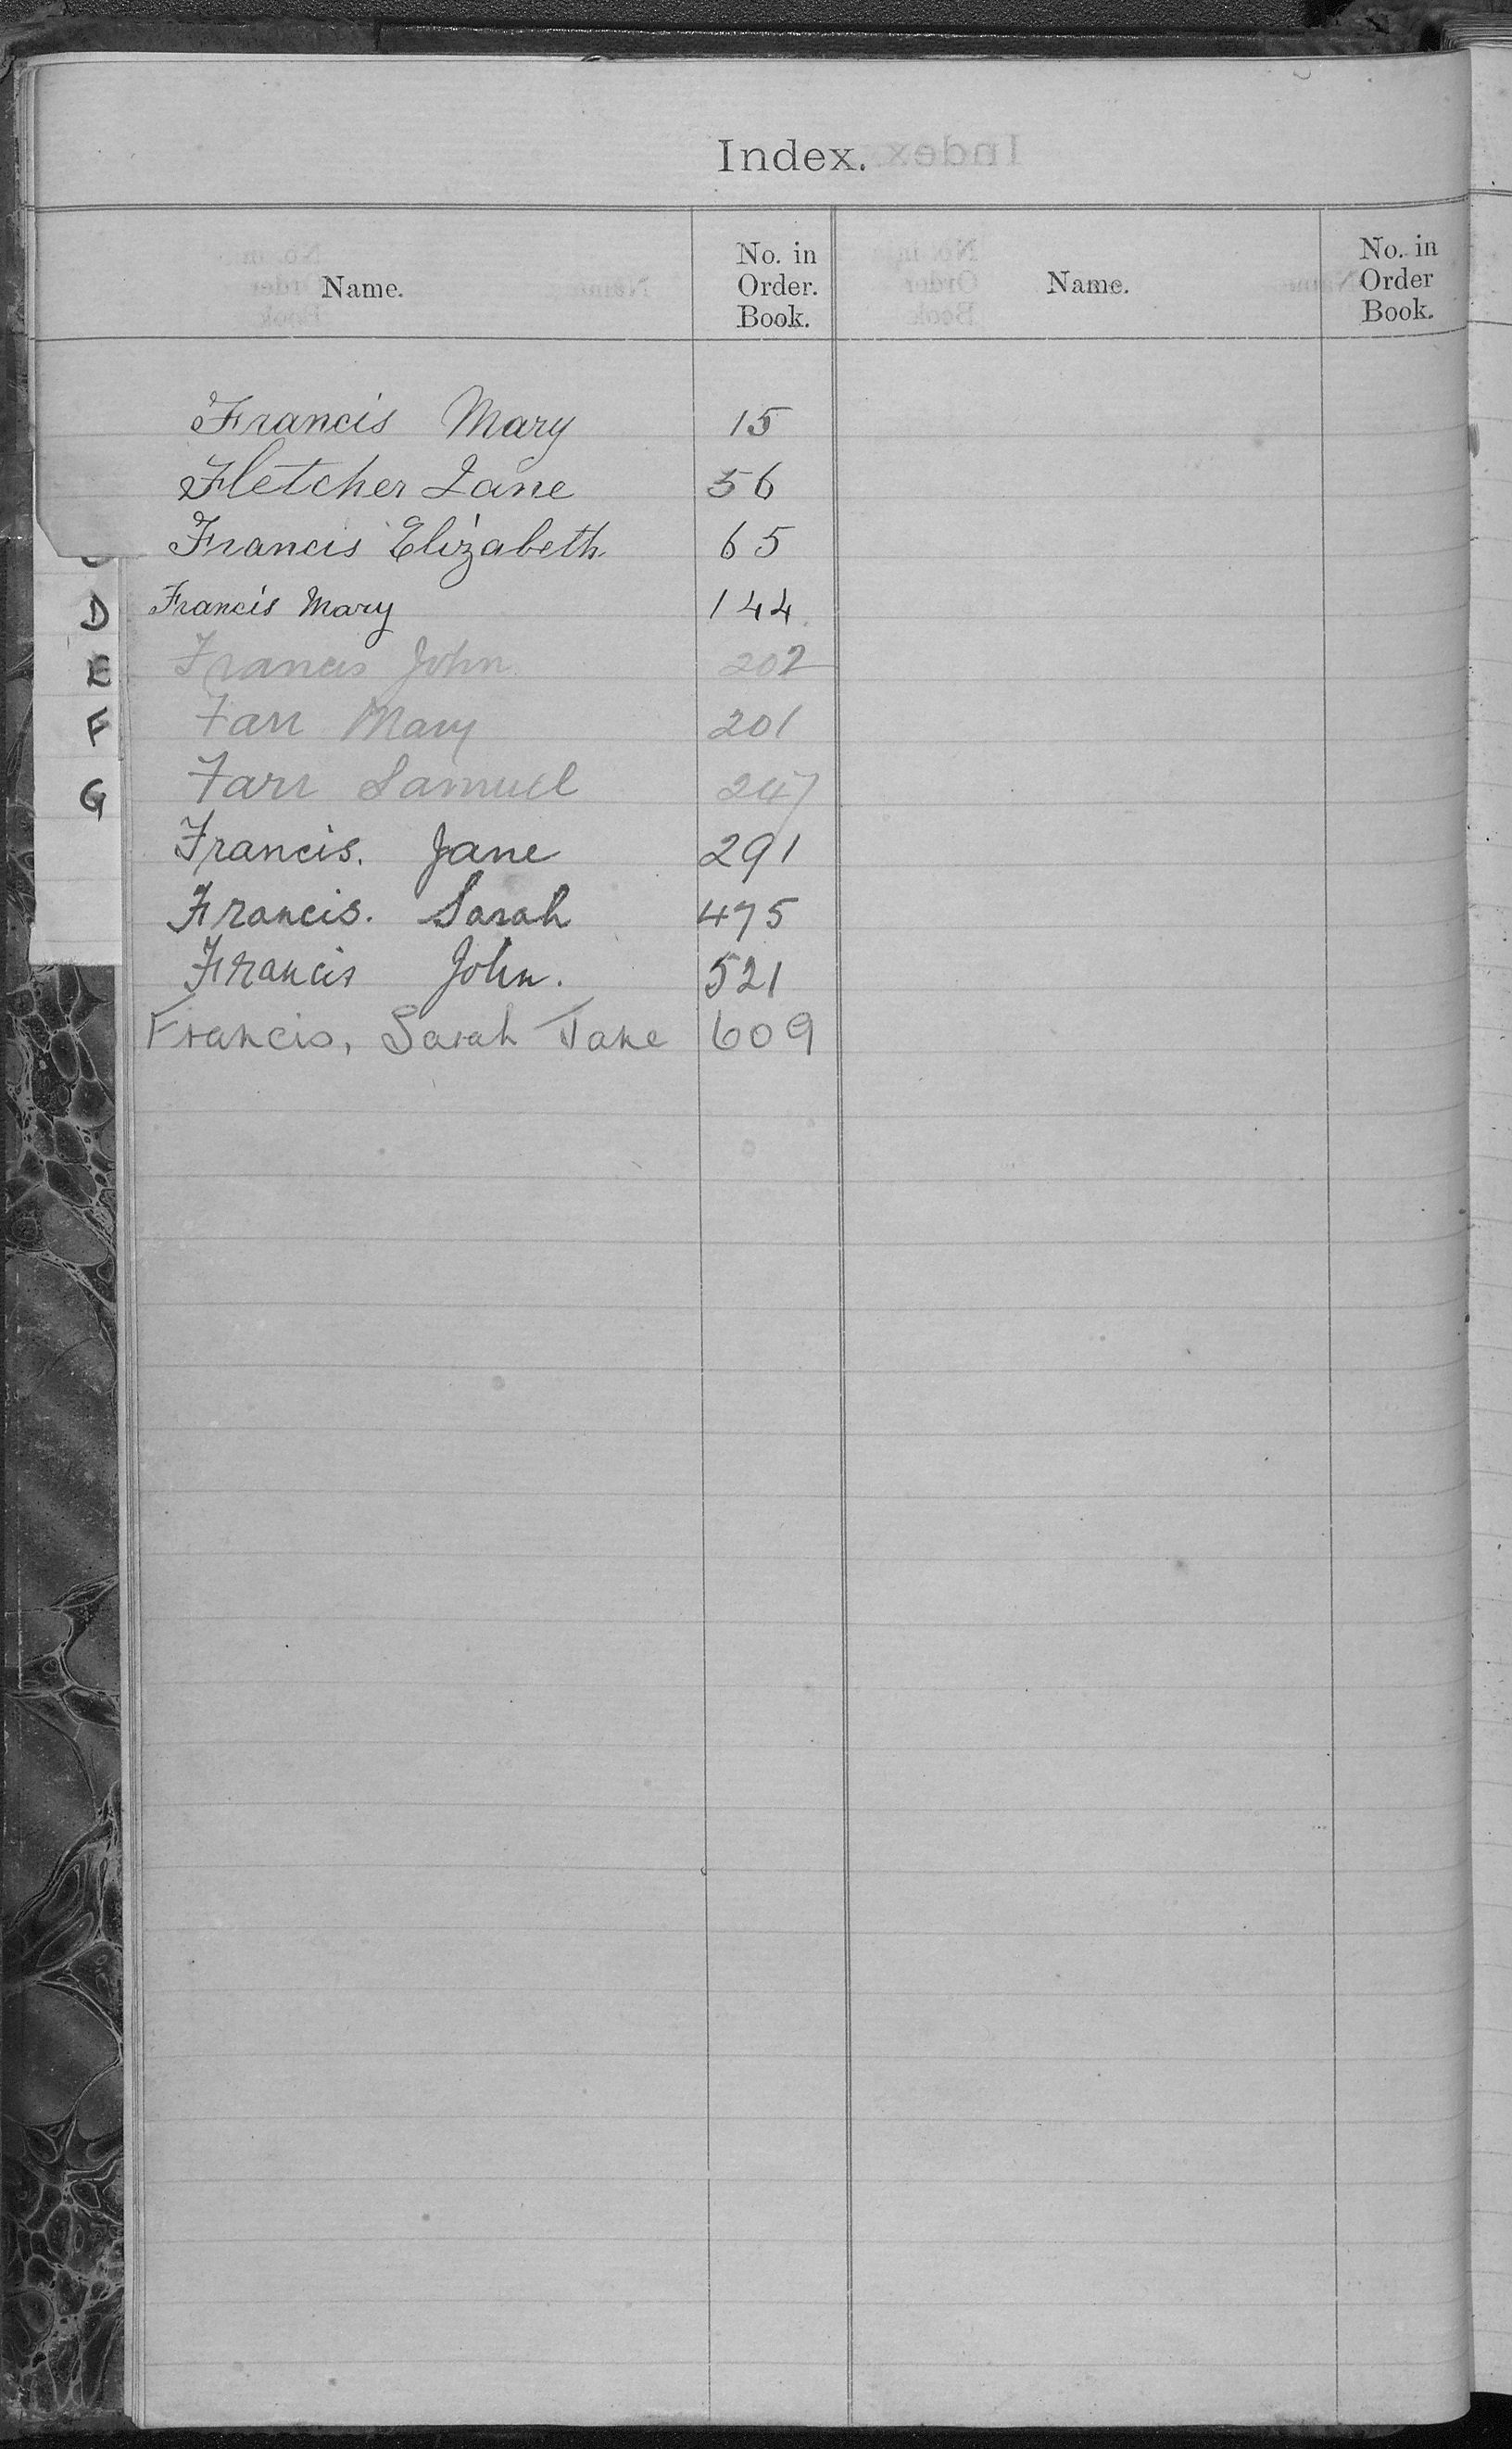 Index.
Name. No. in Order. Book. Name. No. in Order Book.
Francis Mary 15
Fletcher Jane 56
Francis Elizabeth 65
Francis Mary 144
Francis John 202
Farr Mary 201
Farr Samuel 247
Francis. Jane 291
Francis. Sarah 475
Francis John. 521
Francis, Sarah Jane 609
D
E
F
G